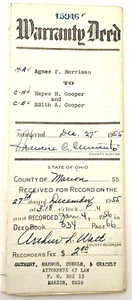 15946
Warranty Deed
Agnes P. Merriman
TO
Hayes H. Cooper
and
Edith A. Cooper
Transferred Dec. 27 1955
COUNTY AUDITOR
STATE OF OHIO
COUNTY OF Marion SS
RECEIVED FOR RECORD ON THE
27th DAY OF December 1955
AT 3:18 O'CLOCK P.M.
AND RECORDED Jan. 4, 1956 IN
DEED BOOK 334 PAGE 66
RECORDERS FEE $2.00
GUTHERY, WARNER, CRACKLY
ATTORNEYS AT LAW
P. O. BOX 15
MARION, OHIO